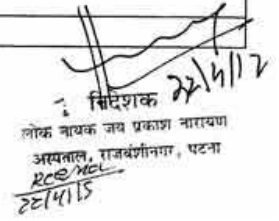 22/4/12
निदेशक
लोक नायक जय प्रकाश नारायण
अस्पताल, राजवंशीनगर, पटना
22/4/15